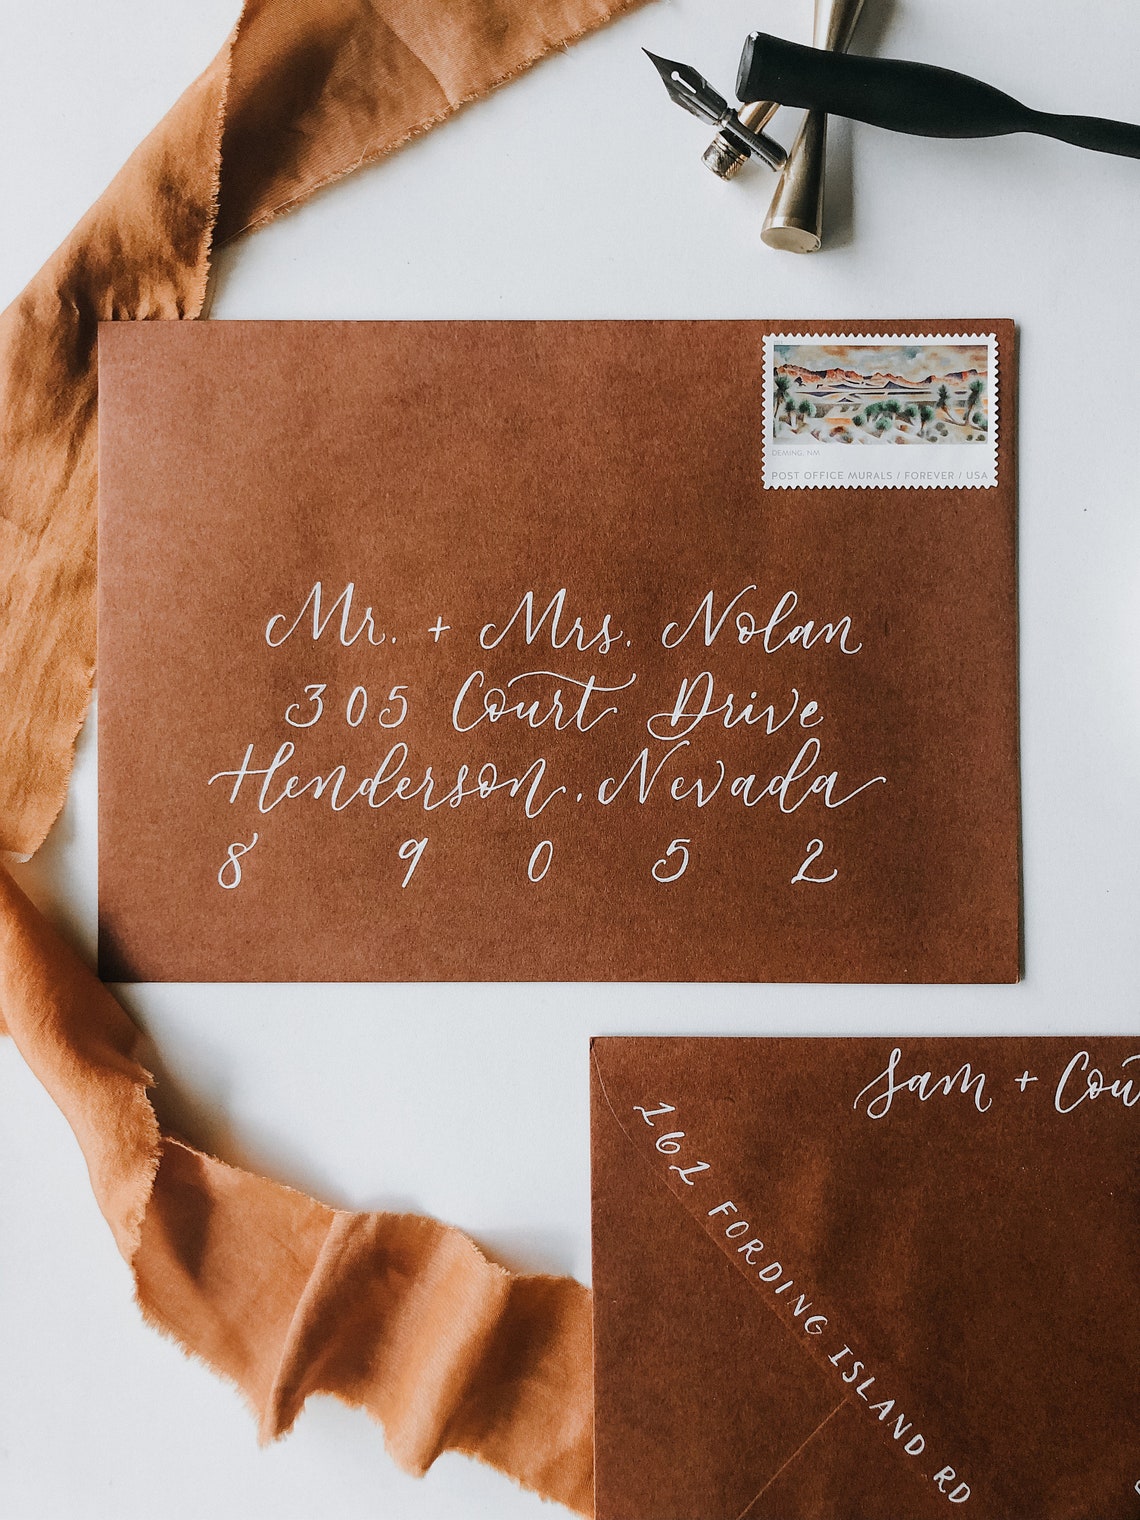 DEMING, NM
POST OFFICE MURALS / FOREVER / USA
Mr. + Mrs. Nolan
305 Court Drive
Henderson, Nevada
8 9 0 5 2
Sam +
162 FORDING ISLAND RD